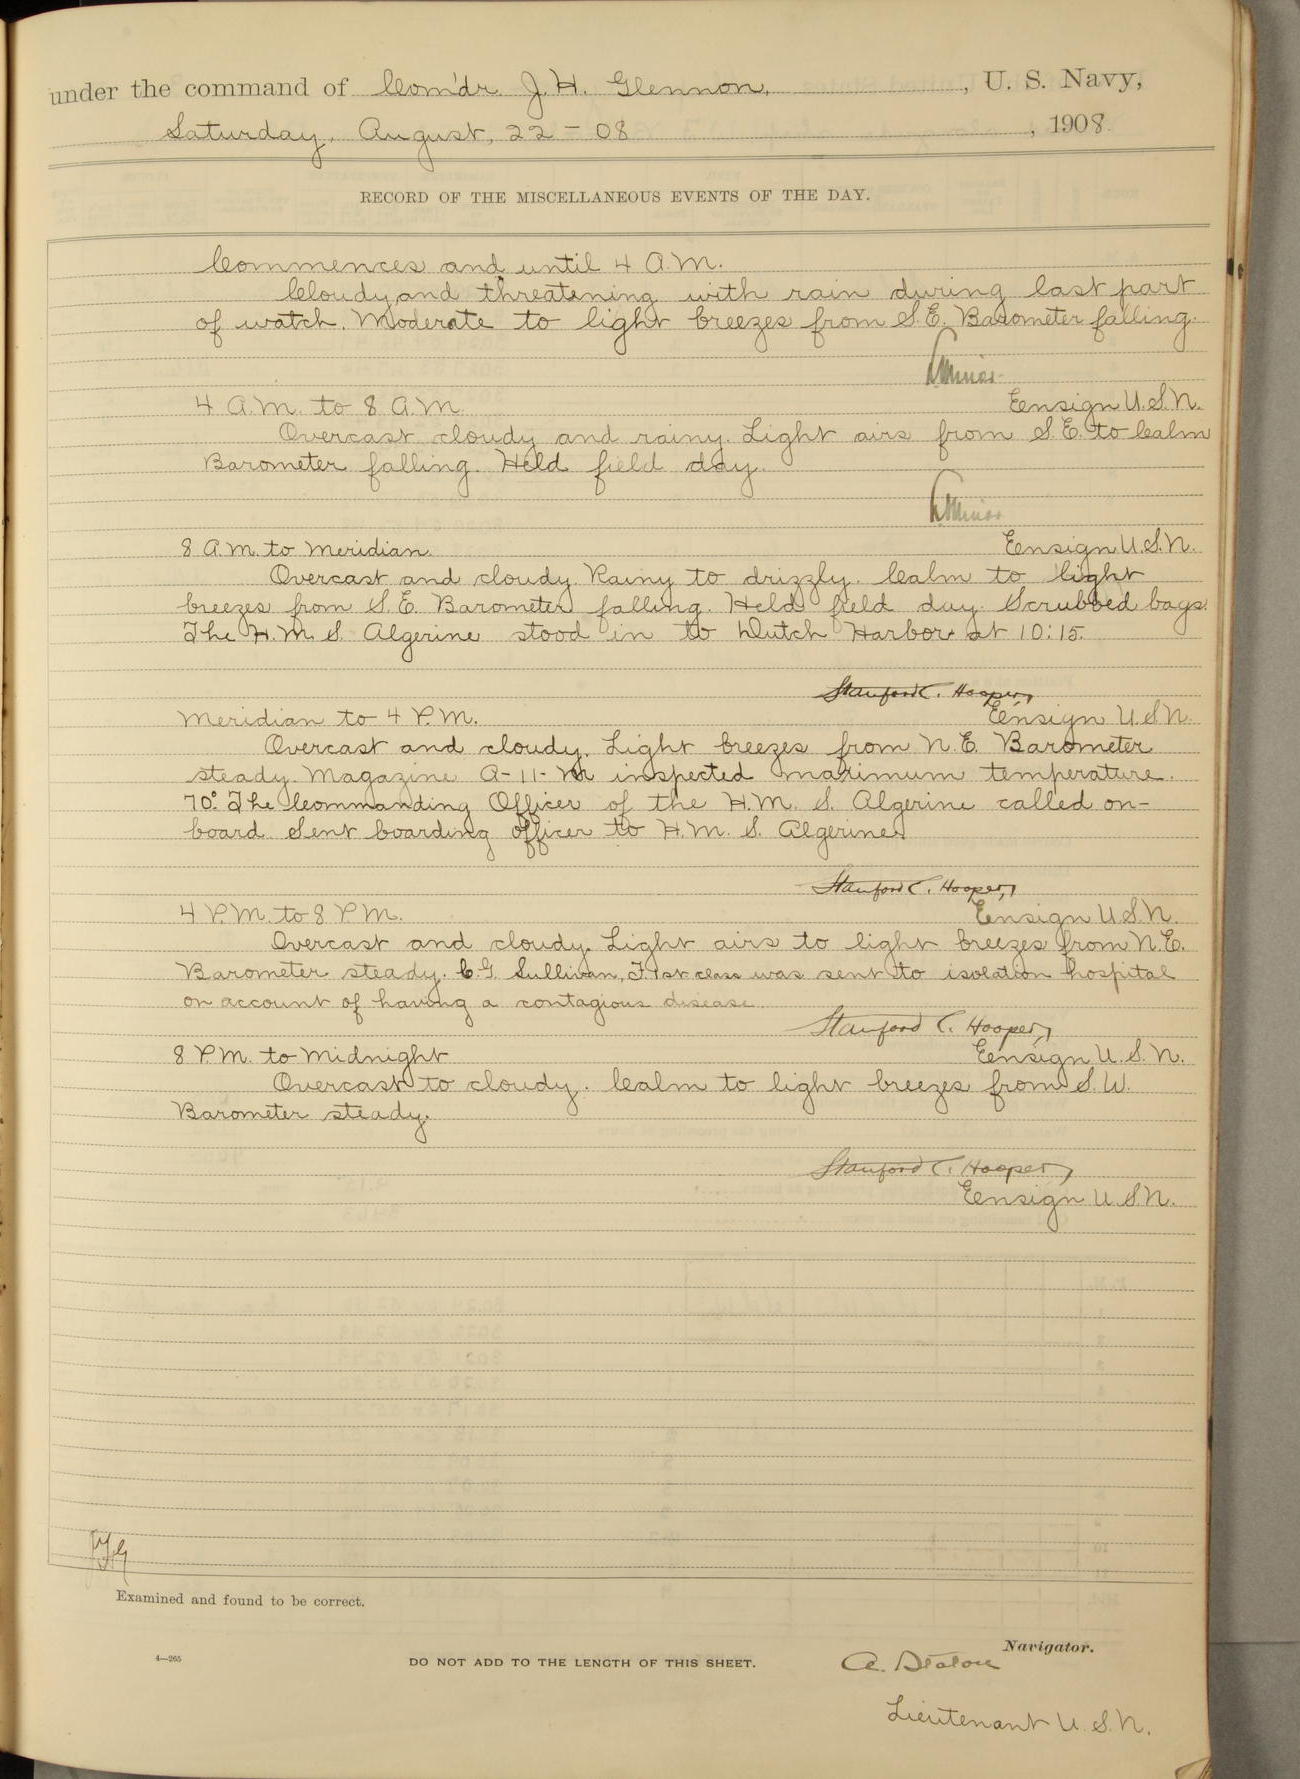 under the command of Com'dr. J. H. Glennon, , U. S. Navy,
Saturday, August, 22 - 08 , 1908.
RECORD OF THE MISCELLANEOUS EVENTS OF THE DAY.
Commences and until 4 A.M.
Cloudy and threatening with rain during last part
of watch. Moderate to light breezes from S.E. Barometer falling.
4 A.M. to 8 A.M. Ensign U.S.N.
Overcast cloudy and rainy. Light airs from S.E. to Calm
Barometer falling. Held field day.
8 A.M. to Meridian. Ensign U.S.N.
Overcast and cloudy. Rainy to drizzly. Calm to light
breezes from S.E. Barometer falling. Held field day. Scrubbed bags.
The H.M.S. Algerine stood in to Dutch Harbor at 10:15.
Stanford C. Hooper,
Meridian to 4 P.M. Ensign U.S.N.
Overcast and cloudy. Light breezes from N.E. Barometer
steady. Magazine A-11-M inspected maximum temperature.
70°. The Commanding Officer of the H.M.S. Algerine called on-
board. Sent boarding officer to H.M.S. Algerine.
Stanford C. Hooper,
4 P.M. to 8 P.M. Ensign U.S.N.
Overcast and cloudy. Light airs to light breezes from N.E.
Barometer steady. C.G. Sullivan, F. 1st class was sent to isolation hospital
on account of having a contagious disease.
Stanford C. Hooper,
8 P.M. to Midnight Ensign U.S.N.
Overcast to cloudy. Calm to light breezes from S.W.
Barometer steady.
Stanford C. Hooper,
Ensign U.S.N.
Examined and found to be correct.
Navigator.
4—265 DO NOT ADD TO THE LENGTH OF THIS SHEET.
Lieutenant U.S.N.